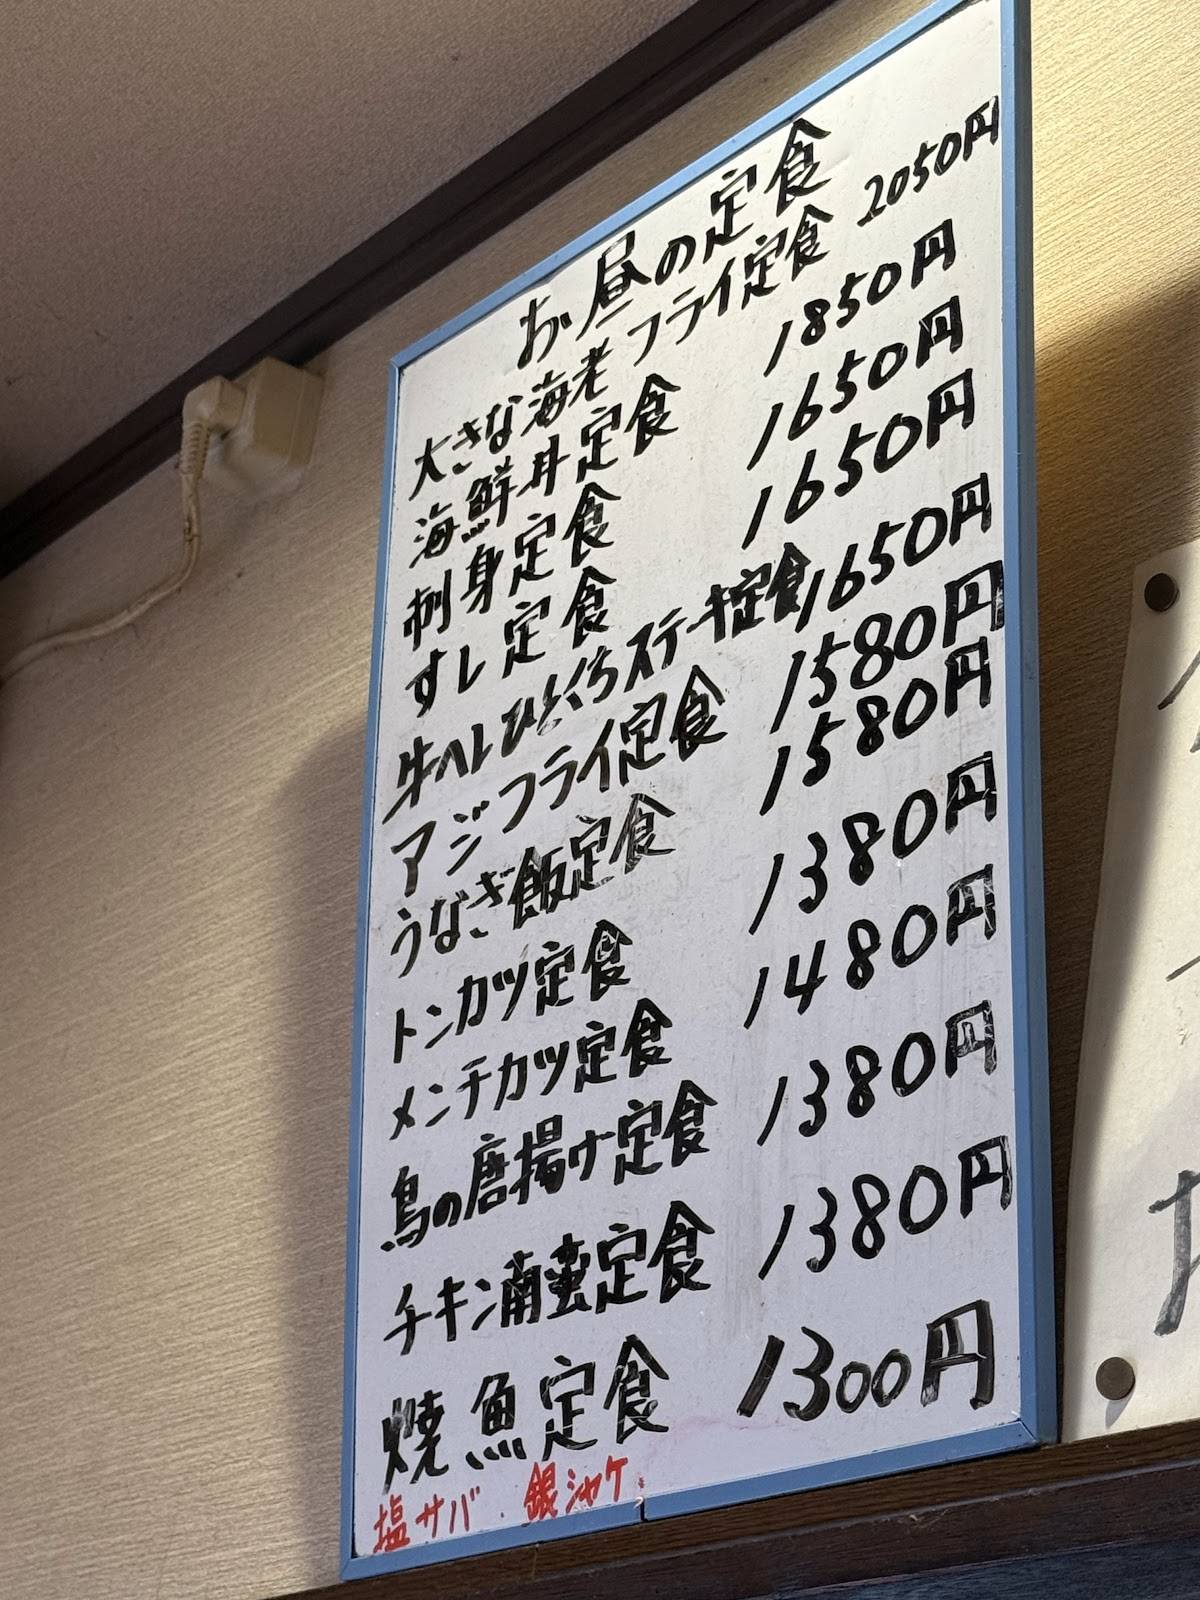 お昼の定食
大きな海老フライ定食 2050円
海鮮丼定食 1850円
刺身定食 1650円
すし定食 1650円
牛ヘレひとくちステーキ定食 1650円
アジフライ定食 1580円
うなぎ飯定食 1580円
トンカツ定食 1380円
メンチカツ定食 1480円
鳥の唐揚げ定食 1380円
チキン南蛮定食 1380円
焼魚定食 1300円
塩サバ . 銀シャケ.